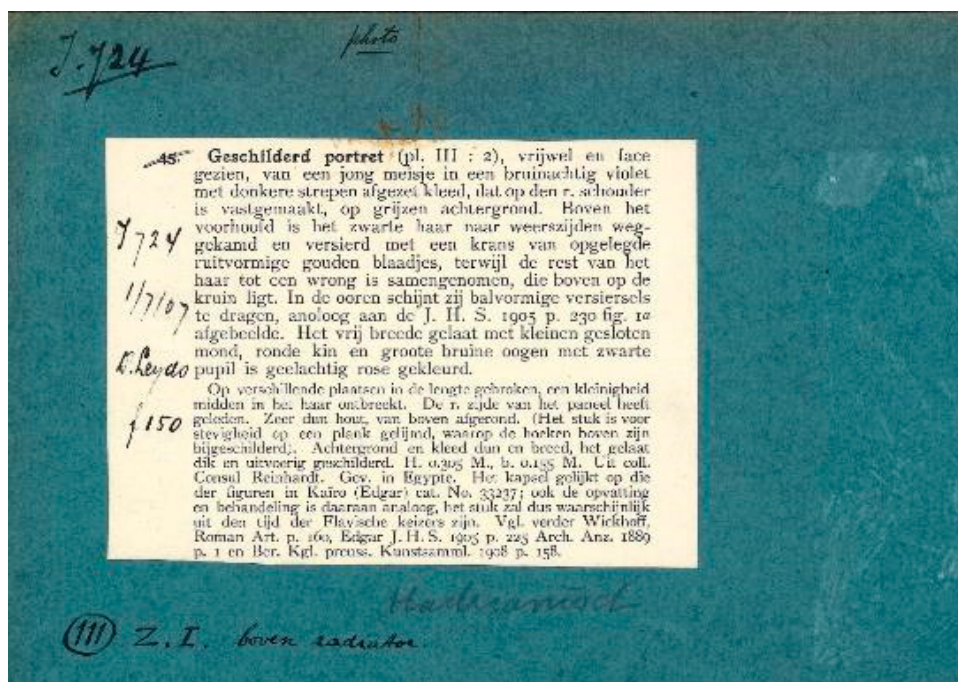 J.724
photo
45. Geschilderd portret (pl. III : 2), vrijwel en face
gezien, van een jong meisje in een bruinachtig violet
met donkere strepen afgezet kleed, dat op den r. schouder
is vastgemaakt, op grijzen achtergrond. Boven het
voorhoofd is het zwarte haar naar weerszijden weg-
gekamd en versierd met een krans van opgelegde
ruitvormige gouden blaadjes, terwijl de rest van het
haar tot een wrong is samengenomen, die boven op de
kruin ligt. In de ooren schijnt zij balvormige versiersels
te dragen, anoloog aan de J. H. S. 1905 p. 230 fig. 1a
afgebeelde. Het vrij breede gelaat met kleinen gesloten
mond, ronde kin en groote bruine oogen met zwarte
pupil is geelachtig rose gekleurd.
Op verschillende plaatsen in de lengte gebroken, een kleinigheid
midden in het haar ontbreekt. De r. zijde van het paneel heeft
geleden. Zeer dun hout, van boven afgerond. (Het stuk is voor
stevigheid op een plank gelijmd, waarop de hoeken boven zijn
bijgeschilderd). Achtergrond en kleed dun en breed, het gelaat
dik en uitvoerig geschilderd. H. 0.305 M., b. 0.155 M. Uit coll.
Consul Reinhardt. Gev. in Egypte. Het kapsel gelijkt op die
der figuren in Kaïro (Edgar) cat. No. 33237; ook de opvatting
en behandeling is daaraan analoog, het stuk zal dus waarschijnlijk
uit den tijd der Flavische keizers zijn. Vgl. verder Wickhoff,
Roman Art. p. 160, Edgar J. H. S. 1905 p. 225 Arch. Anz. 1889
p. 1 en Ber. Kgl. preuss. Kunstsamml. 1908 p. 158.
J 724
1/7/07
D. Leyds
f 150
Hadrianisch
111 Z.I. boven radiator.